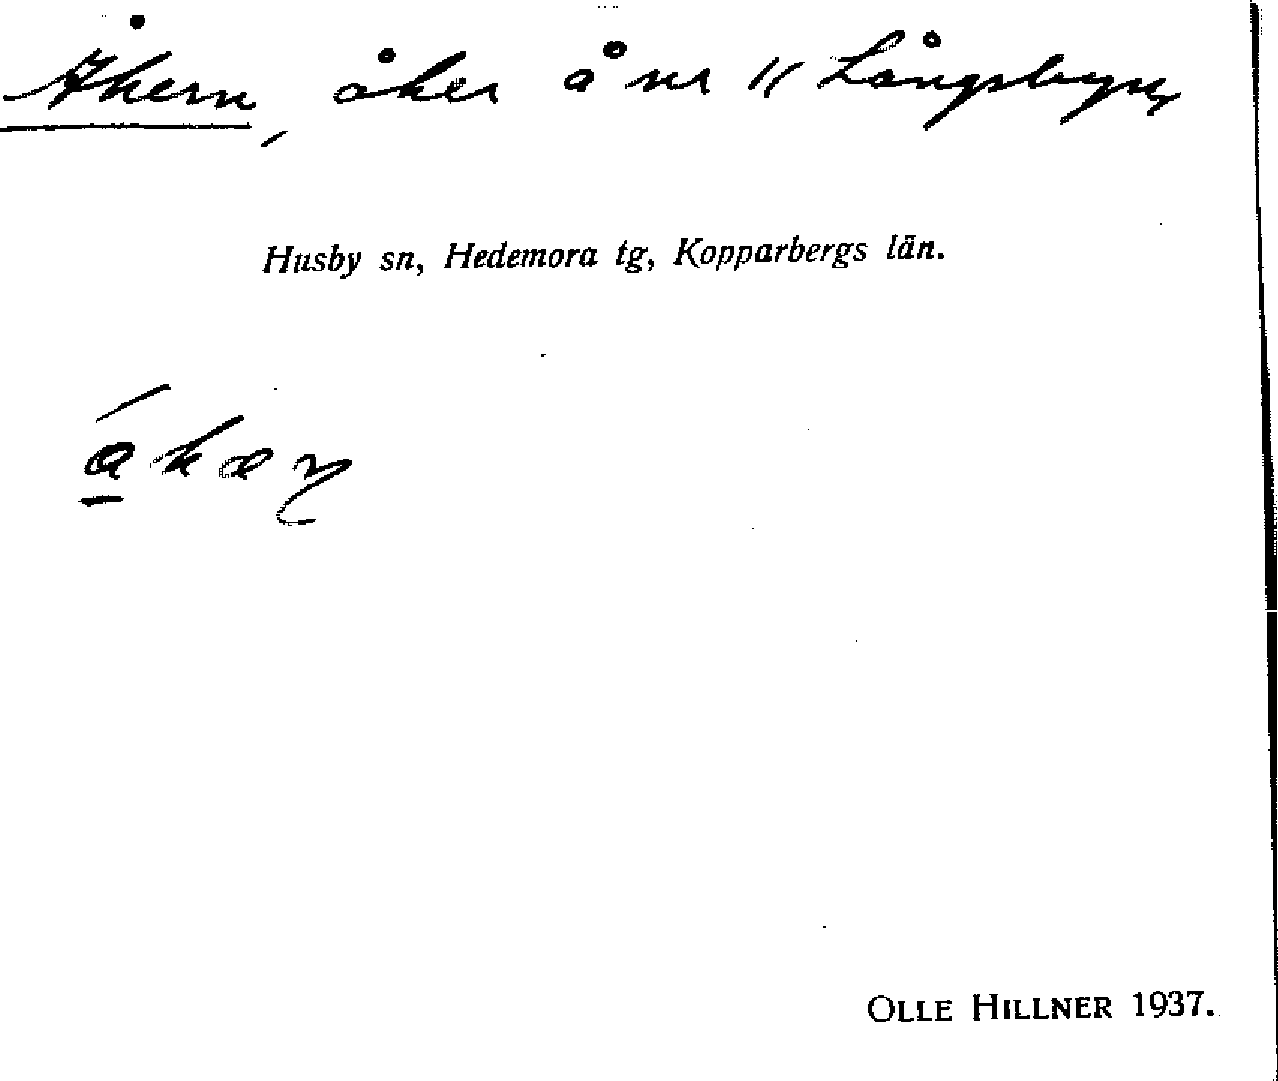 Åkern, åker å nr 11 Långsbyn,
Husby sn, Hedemora tg, Kopparbergs län.
OLLE HILLNER 1937.